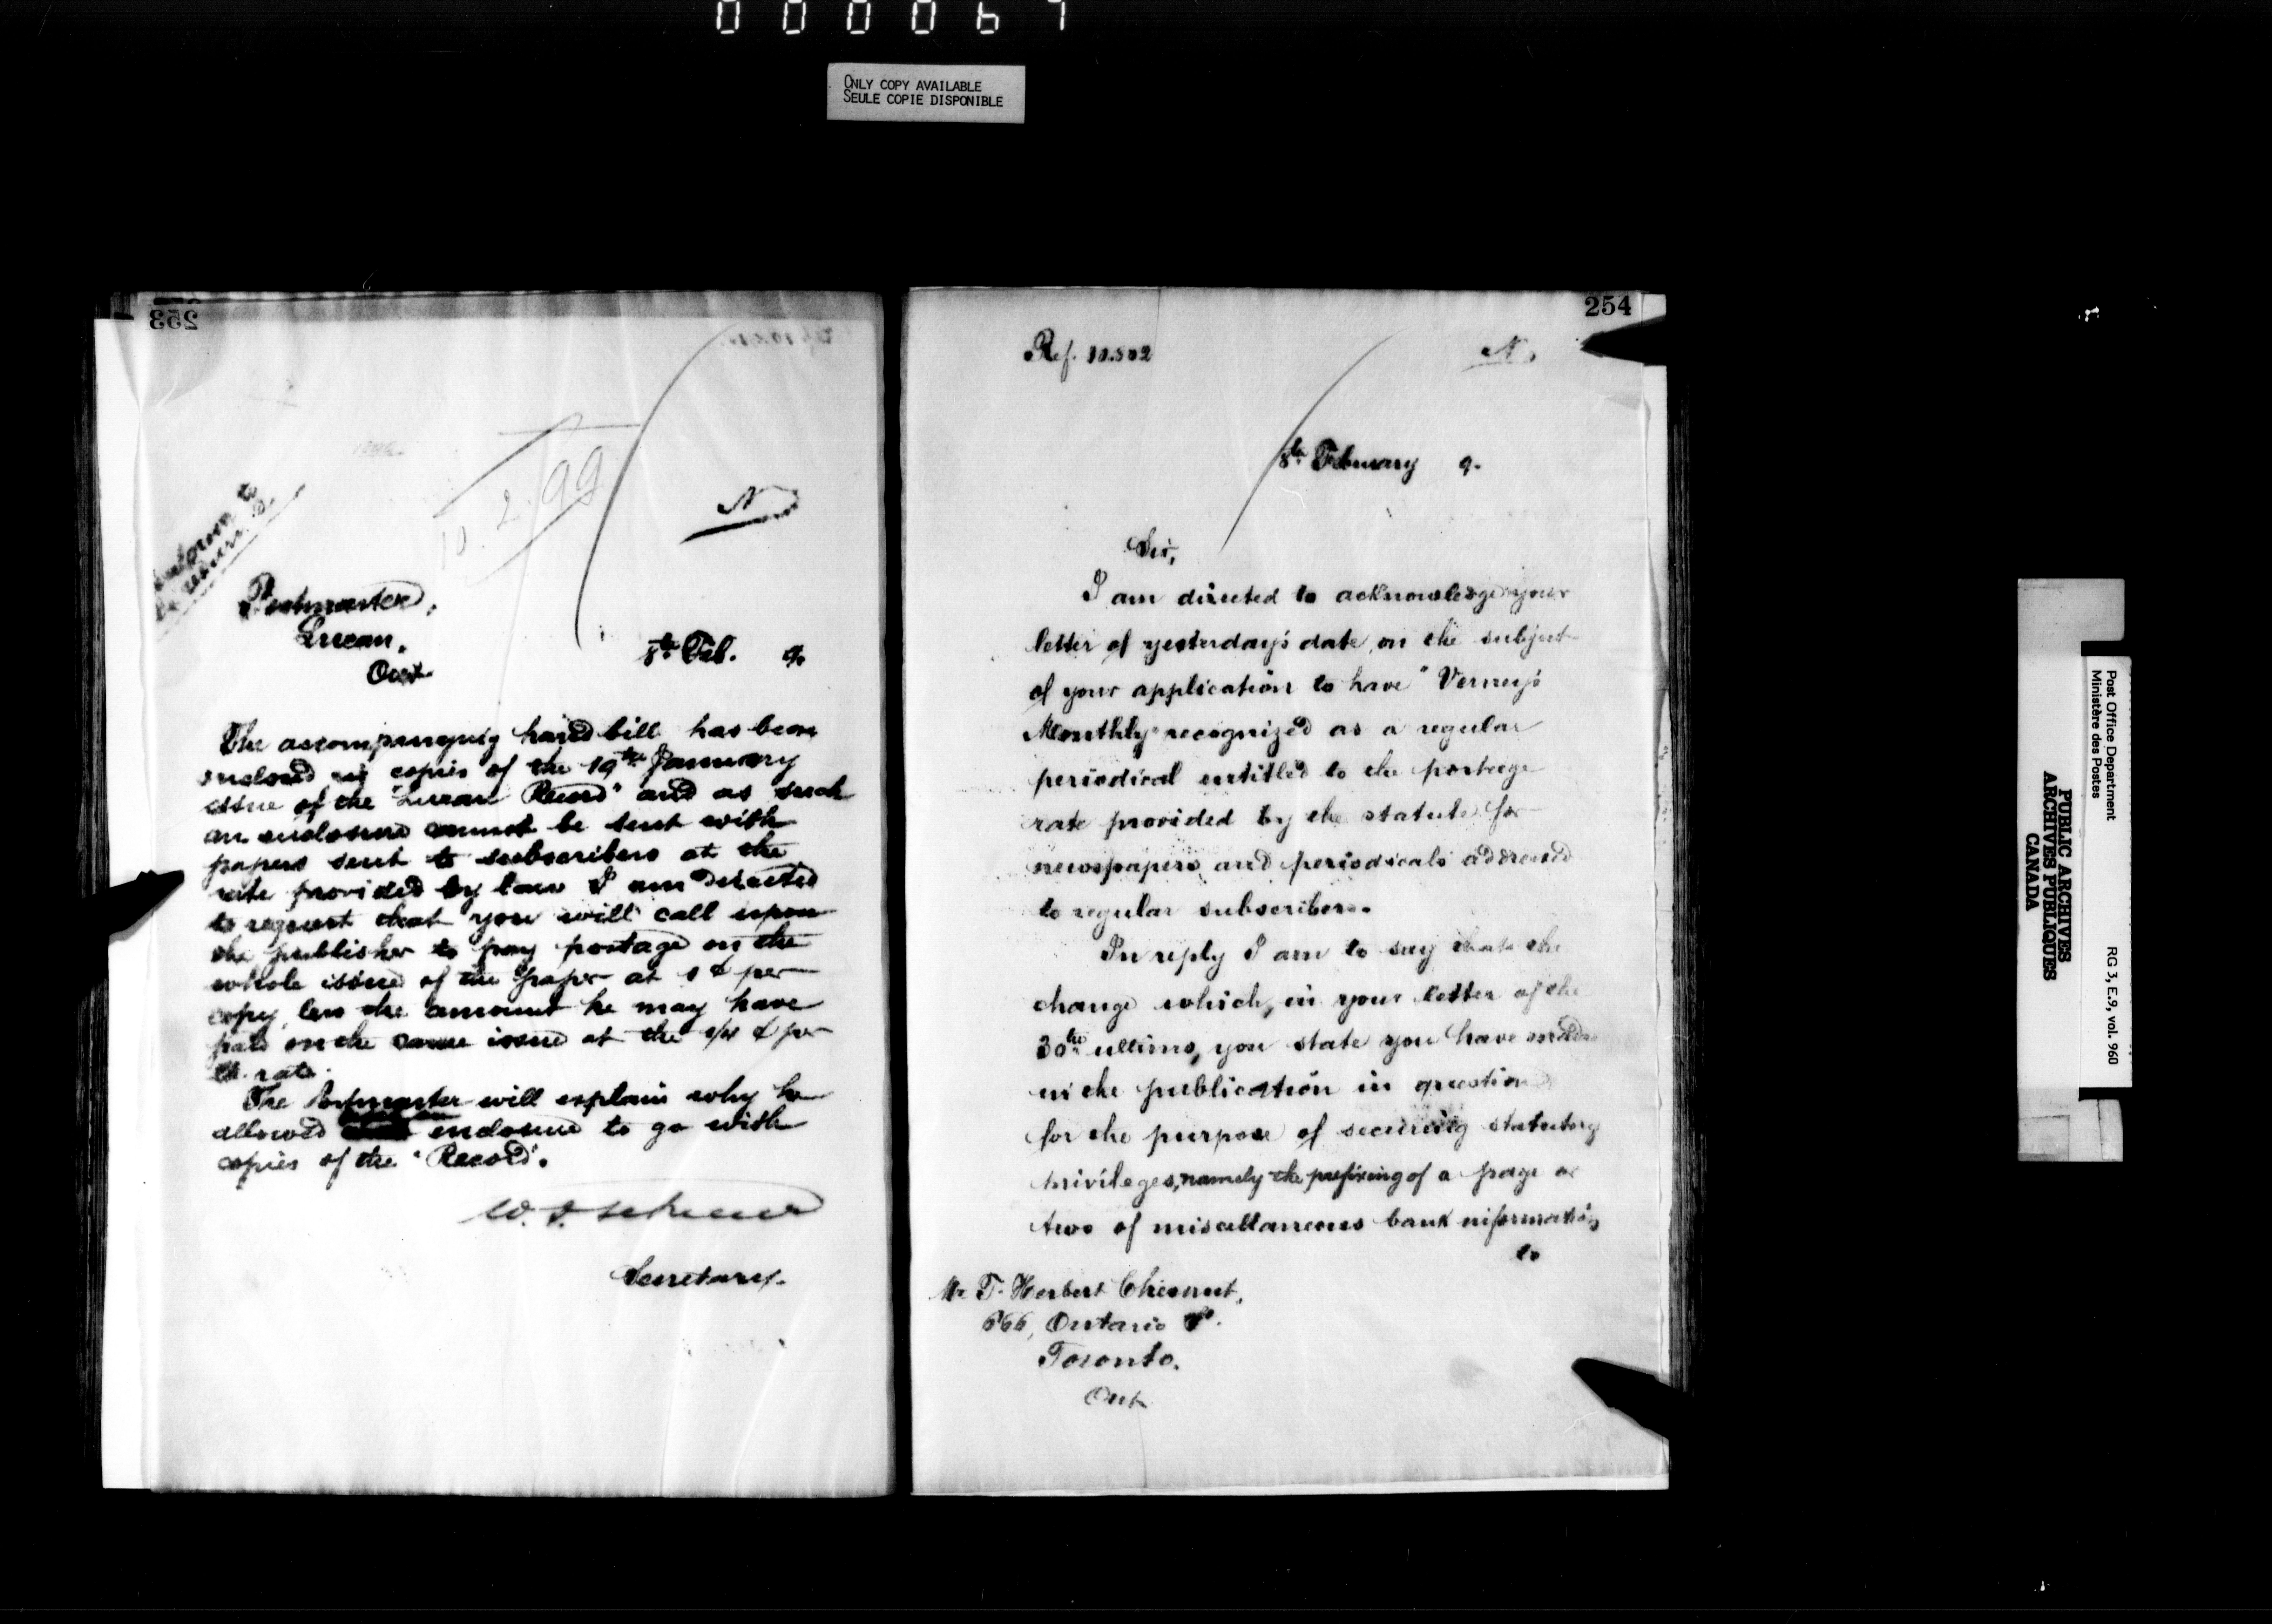 000067
ONLY COPY AVAILABLE
SEULE COPIE DISPONIBLE
253
10.2.99
N
Postmaster,
Lucan,
Ont.
8th Feb. 9.
The accompanying hand bill has been
enclosed in copies of the 19th January
issue of the "Lucan Record" and as such
an enclosure cannot be sent with
papers sent to subscribers at the
rate provided by law I am directed
to request that you will call upon
the publisher to pay postage on the
whole issue of the paper at 1 ¢ per
copy, less the amount he may have
paid on the same issue at the ¢ per
lb. rate.
The Postmaster will explain why he
allowed an enclosure to go with
copies of the "Record".
Secretary.
254
Ref. 10.502
N.
8th February 9.
Sir,
I am directed to acknowledge your
letter of yesterday's date, on the subject
of your application to have "Verney's
Monthly" recognized as a regular
periodical entitled to the postage
rate provided by the statute for
newspapers and periodicals addressed
to regular subscribers.
In reply I am to say that the
change which, in your letter of the
30th ultimo, you state you have made
in the publication in question
for the purpose of securing statutory
privileges, namely the prefixing of a page or
two of miscellaneous bank information
to
Mr T. Herbert Chesnut,
666, Ontario St.
Toronto.
Ont
PUBLIC ARCHIVES
ARCHIVES PUBLIQUES
CANADA
Post Office Department
Ministère des Postes
RG 3, E.9, vol. 960